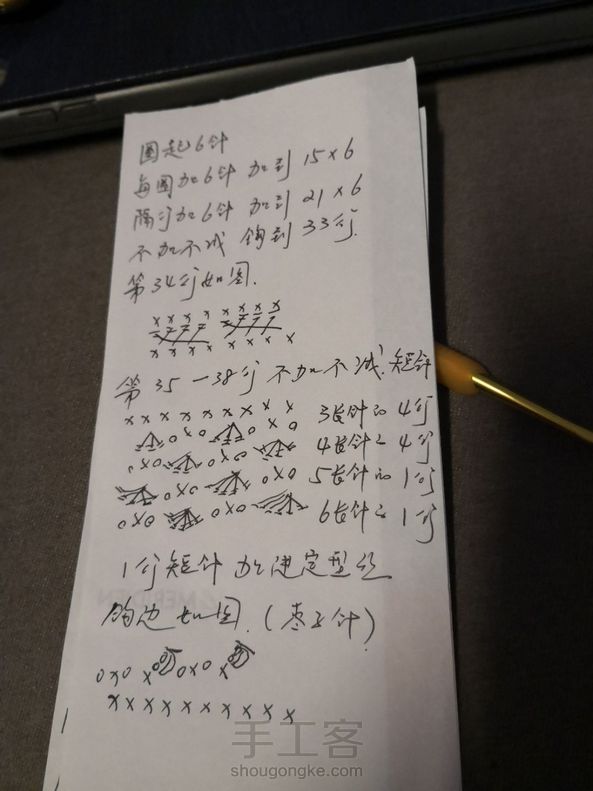 圈起6针
每圈加6针 加到 15×6
隔行加6针 加到 21×6
不加不减 钩到 33行.
第34行如图.
x x x x x x x x
x x x x x x x x
第 35 — 38行 不加不减.短针
x x x x x x x x x 3长针的 4行
4长针的 4行
5长针的 1行
6长针的 1行
1行短针 加进定型丝
钩边如图.(枣子针)
o x o x o x o x
x x x x x x x x x x
手工客
shougongke.com